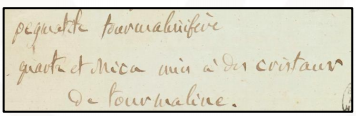 pegmatite tourmalinifère
quartz et mica unis à des cristaux
de tourmaline.